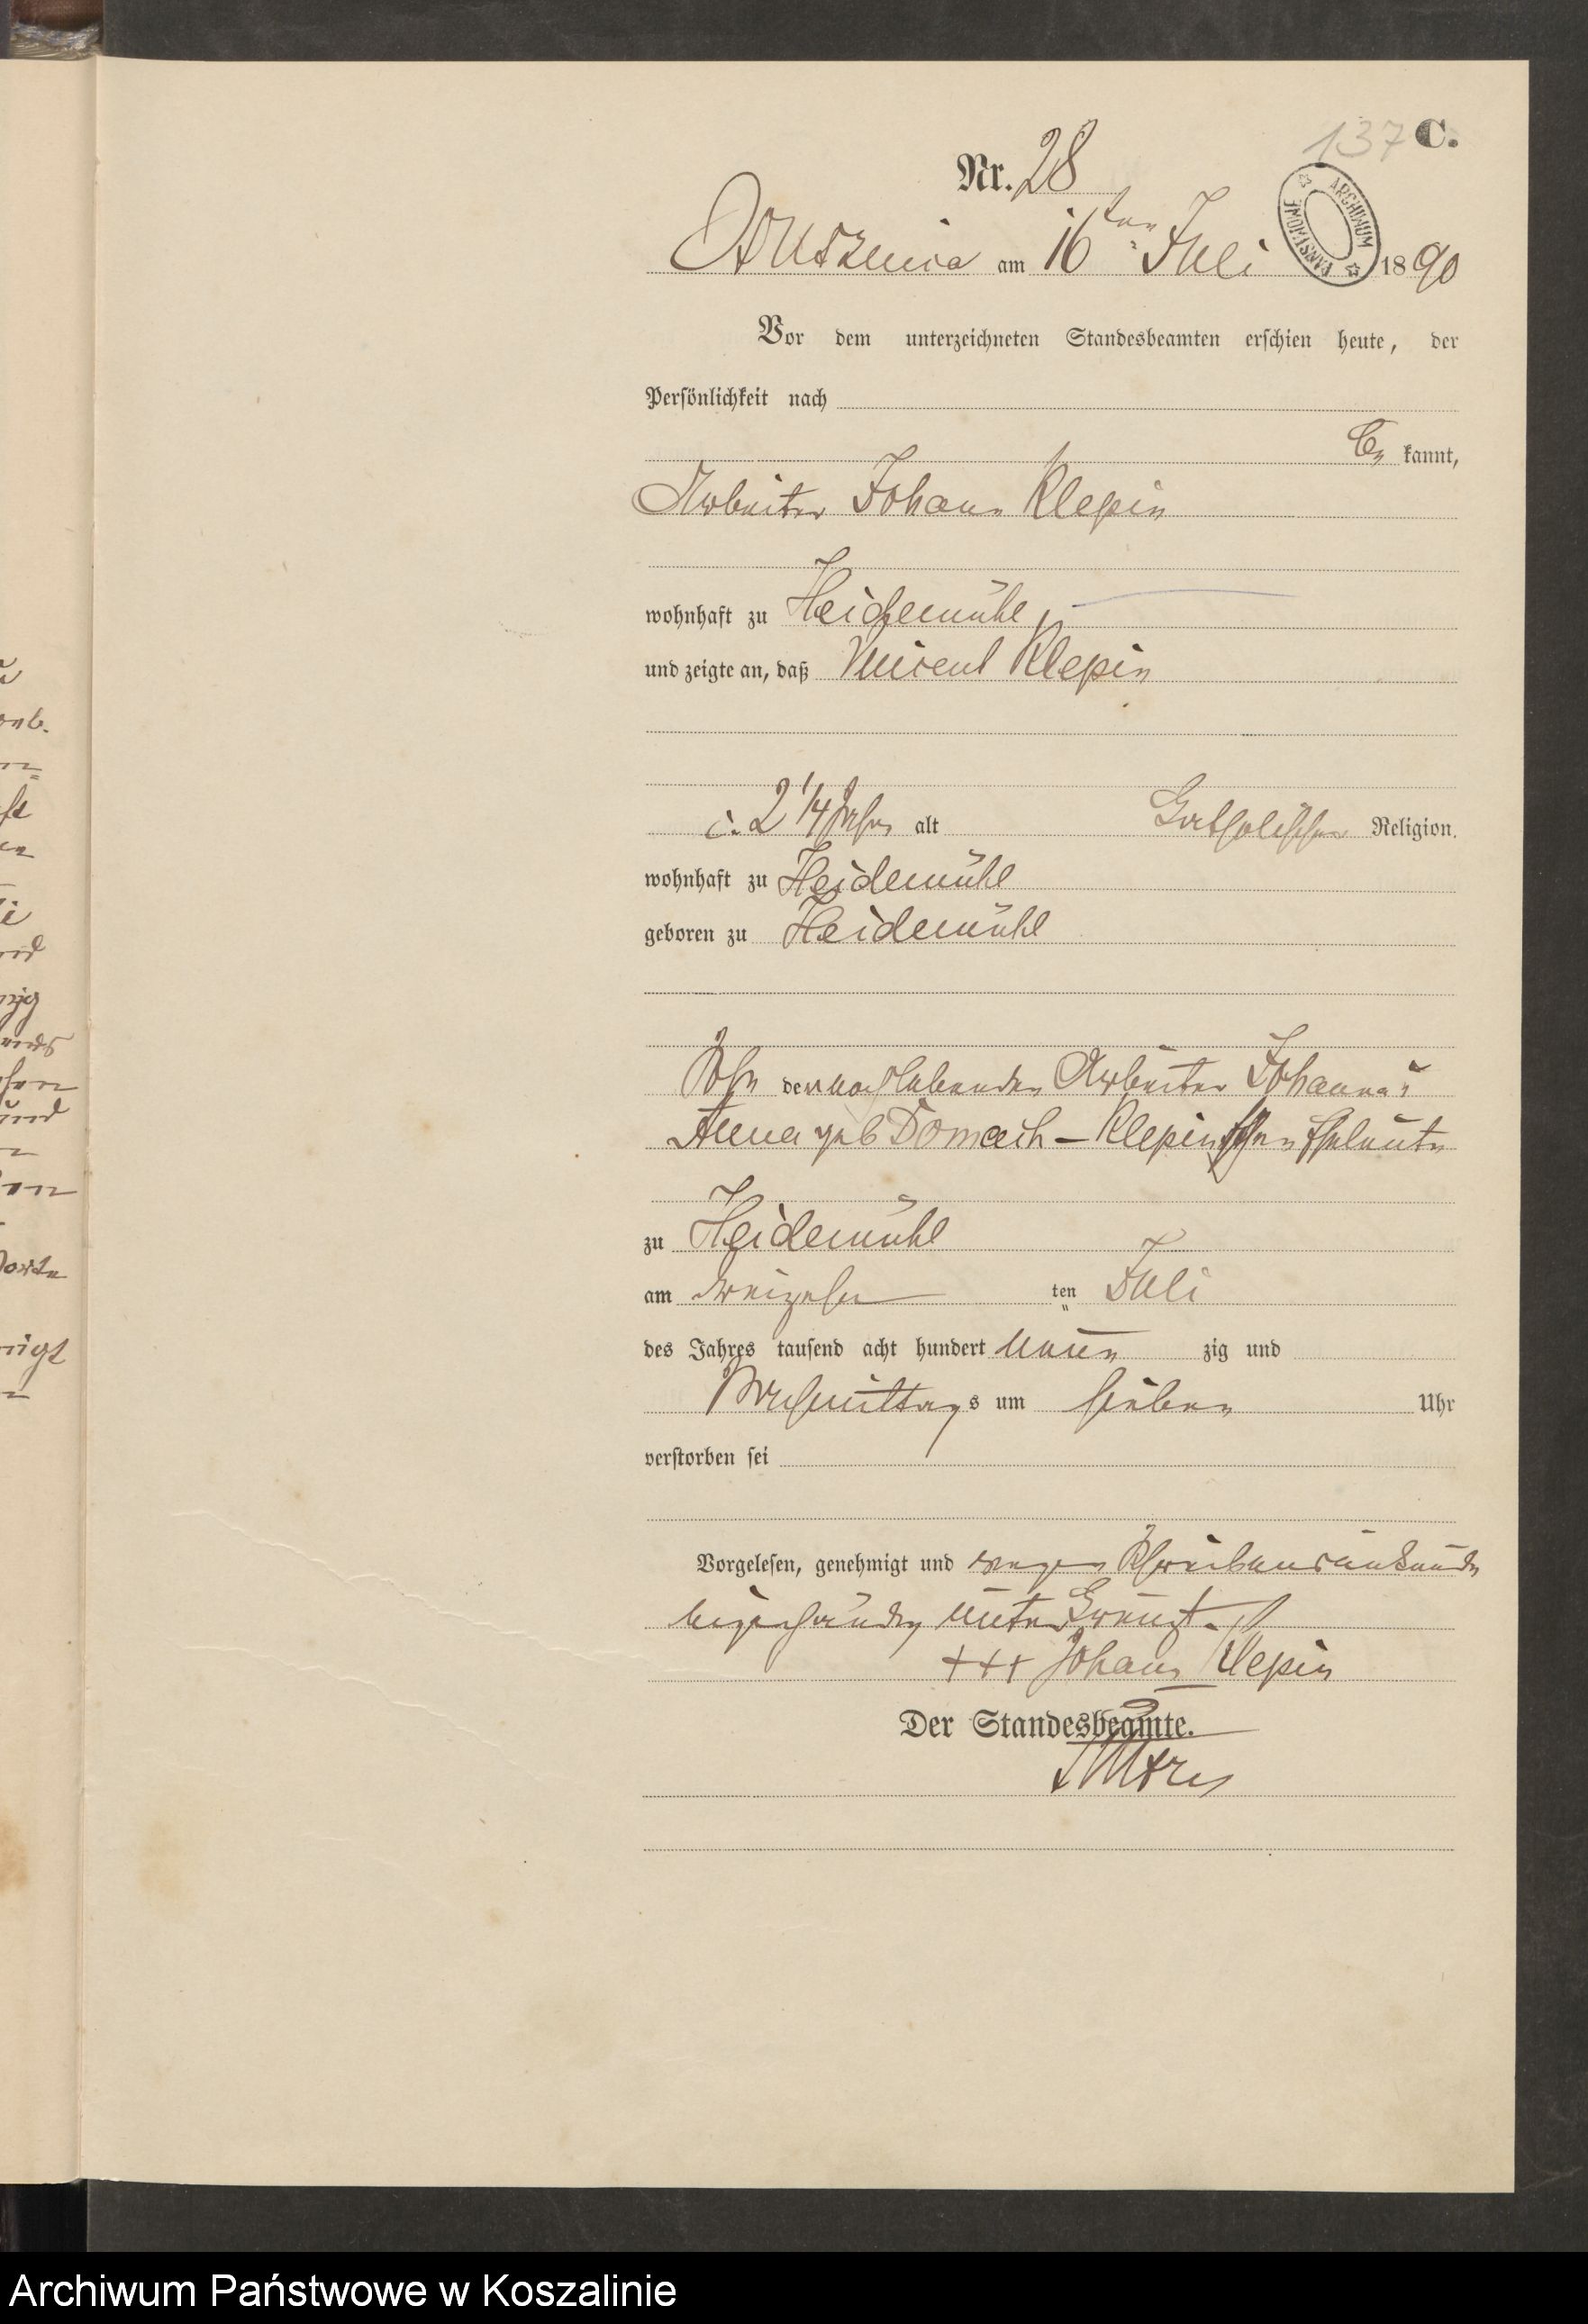 137 C.
Nr. 28
am 16ten Juli 1890
ARCHIWUM PAŃSTWOWE
Vor dem unterzeichneten Standesbeamten erschien heute, der
Persönlichkeit nach
be kannt,
Arbeiter Johann Klepin
wohnhaft zu Heidemühl
und zeigte an, daß Vincent Klepin
c. 2 1/4 Jahr alt katholischer Religion
wohnhaft zu Heidemühl
geboren zu Heidemühl
Sohn der noch lebenden Arbeiter Johann
Anna geb Domach – Klepin'schen Eheleute
zu Heidemühl
am dreizehn ten Juli
des Jahres tausend acht hundert neun zig und
Nachmittags um sieben Uhr
verstorben sei
Vorgelesen, genehmigt und wegen Schreibensunkunde
unterkreuzt.
+++ Johann Klepin
Der Standesbeamte.
Archiwum Państwowe w Koszalinie